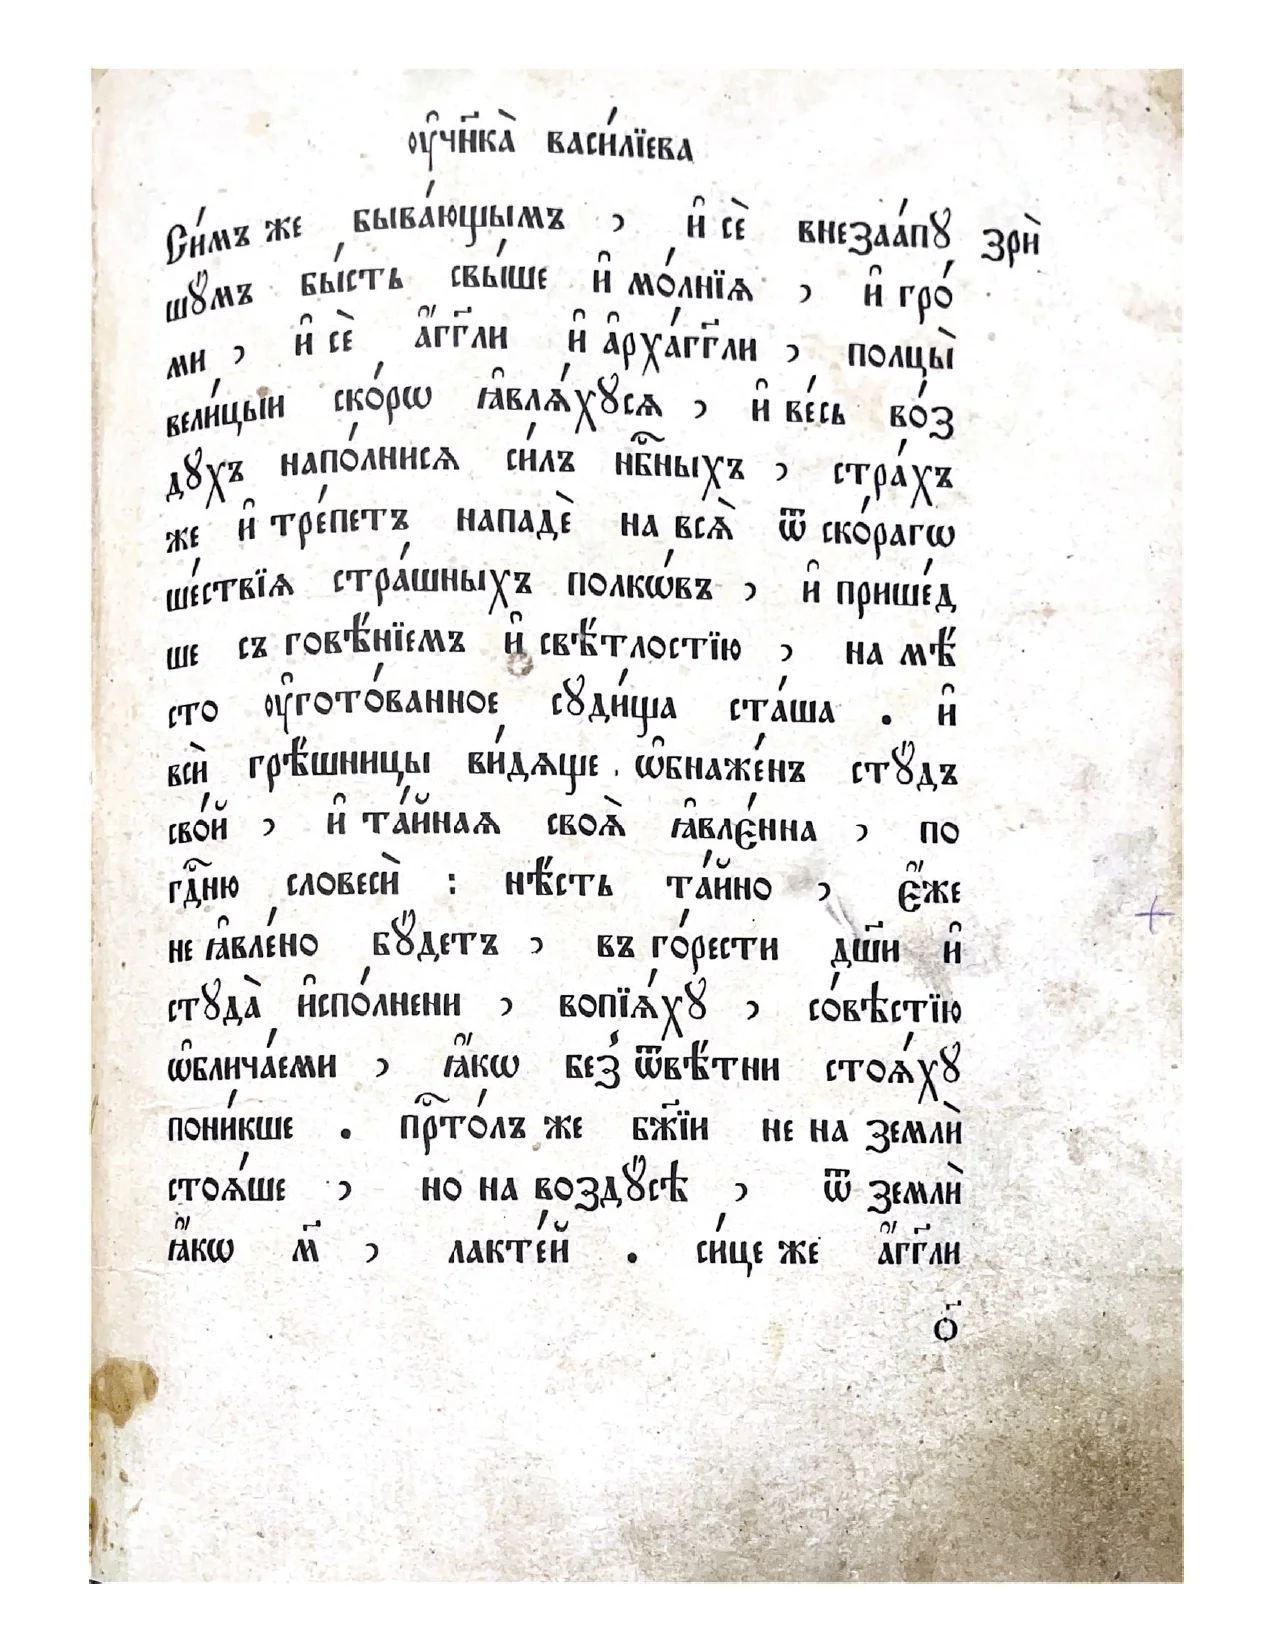 ᲂу҆чн҃ка̀ васи́лїева
Си́мъ же быва́ющымъ , и҆ сѐ внезаа́пꙋ зрѝ
шꙋ́мъ бы́сть свы́ше и҆ мо́лнїѧ , и҆ гро́
ми , и҆ сѐ а҆́гг҃ли и҆ а҆рха́гг҃ли , полцы̀
вели́цыи ско́рѡ ꙗ҆влѧ́хꙋсѧ , и҆ ве́сь во́з
дꙋхъ напо́лнисѧ си́лъ нб҃ныхъ , стра́хъ
же и҆ тре́петъ нападѐ на всѧ̀ ѿ ско́рагѡ
ше́ствїѧ стра́шныхъ полкѡ́въ , и҆ прише́д
ше съ говѣ́нїемъ и҆ свѣ́тлостїю , на мѣ́
сто ᲂу҆гото́ванное сꙋди́ща ста́ша . и҆
всѝ грѣ́шницы ви́дѧще . ѡ҆бнаже́нъ стꙋ́дъ
сво́й , и҆ та́йнаѧ своѧ̀ ꙗ҆вле́нна , по
гд҃ню словесѝ : нѣ́сть та́йно , є҆́же
не ꙗ҆вле́но бꙋ́детъ , въ го́рести дш҃и и҆
стꙋда̀ и҆спо́лнени , вопїѧ́хꙋ , со́вѣстїю
ѡ҆блича́еми , ꙗ҆́кѡ без̾ ѿвѣ́тни стоѧ́хꙋ
пони́кше . прⷭ҇то́лъ же бж҃їи не на землѝ
стоѧ́ше , но на воздꙋ́сѣ , ѿ землѝ
ꙗ҆́кѡ м҃ , лакте́й . си́це же а҆́гг҃ли
о҃